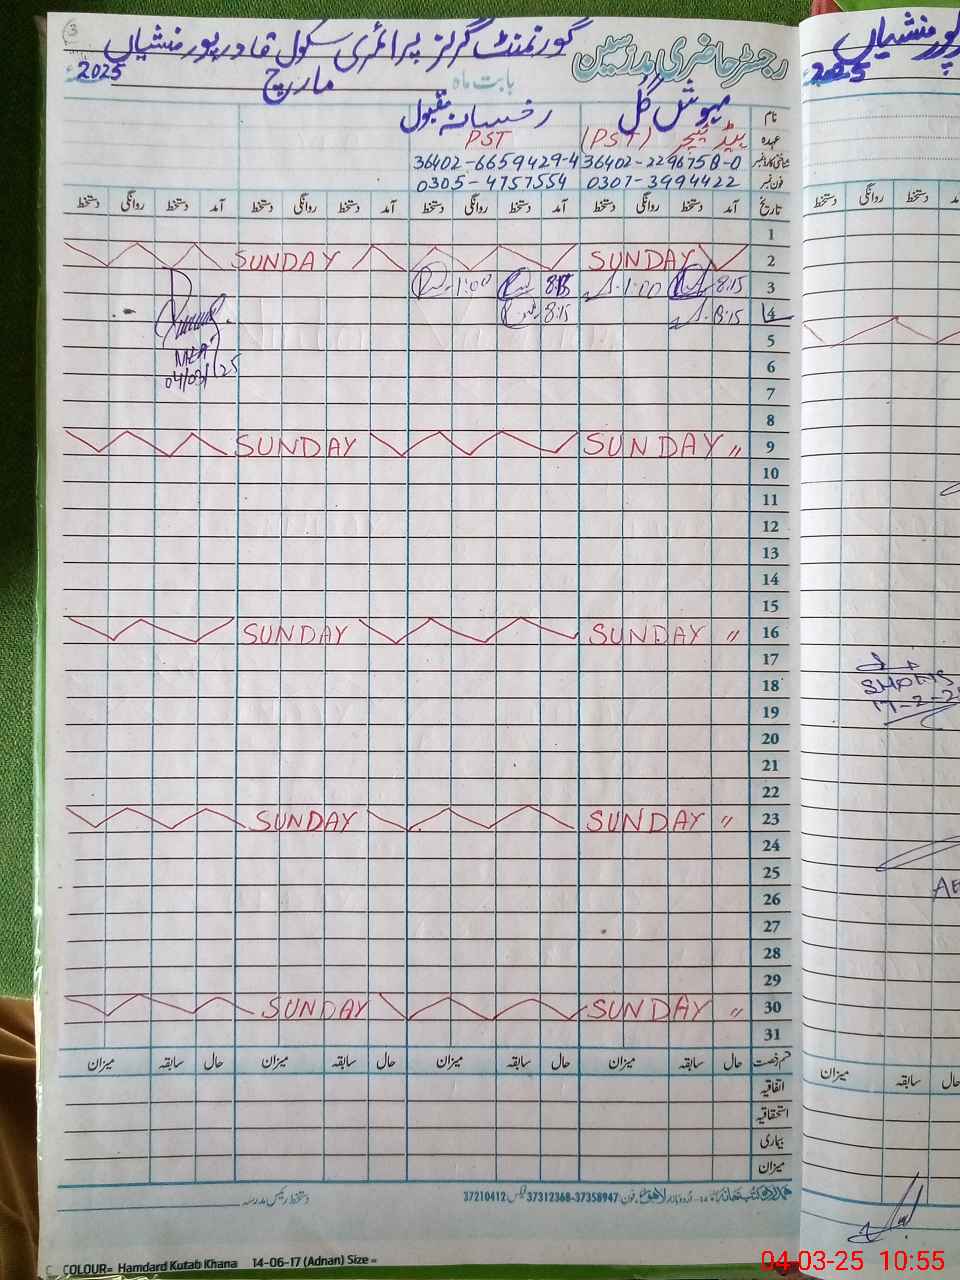 3
رجسٹر حاضری مدرسین
گورنمنٹ گرلز پرائمری سکول قادر پور منشیاں
بابت ماہ مارچ 2025
نام مہوش گل رخسانہ مقبول
عہدہ ہیڈ ٹیچر (PST) PST
شناختی کارڈ نمبر 36402-2296758-0 36402-6659429-4
فون نمبر 0307-3994422 0305-4757554
تاریخ آمد دستخط روانگی دستخط آمد دستخط روانگی دستخط آمد دستخط روانگی دستخط آمد دستخط روانگی دستخط
1
2 SUNDAY SUNDAY
3 8:15 1:00 8:15 1:00
4 8:15 8:15
5
6
04/03/25
7
8
9 SUNDAY " SUNDAY
10
11
12
13
14
15
16 SUNDAY " SUNDAY
17
18
19
20
21
22
23 SUNDAY " SUNDAY
24
25
26
27
28
29
30 SUNDAY " SUNDAY
31
قسم رخصت حال سابقہ میزان حال سابقہ میزان حال سابقہ میزان حال سابقہ میزان
اتفاقیہ
استحقاقیہ
بیماری
میزان
37210412 فیکس 37312368-37358947 فون
دستخط رئیس مدرسہ
COLOUR= Hamdard Kutab Khana 14-06-17 (Adnan) Size =
پور منشیاں
2025
دستخط روانگی دستخط
میزان سابقہ حال
04-03-25 10:55